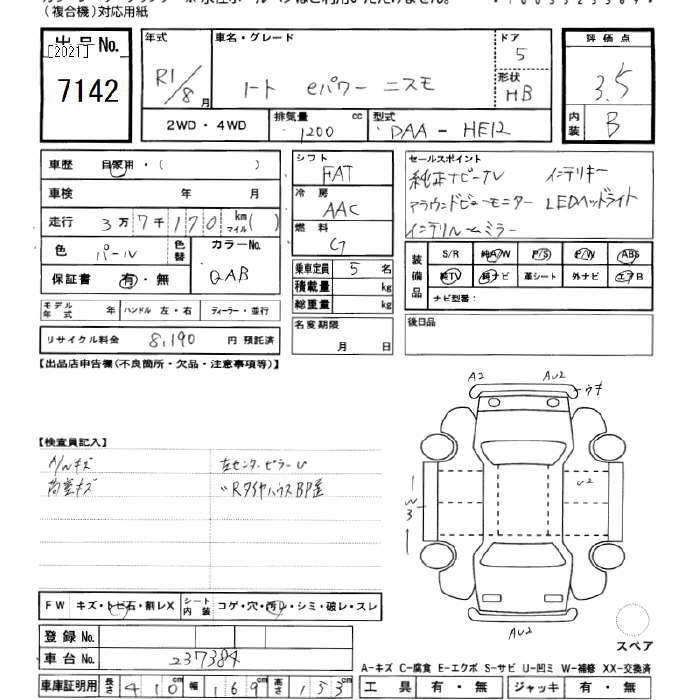 (複合機)対応用紙
出品No.
[2021]
7142
年式
R1/8月
車名・グレード
ノート eパワー ニスモ
ドア
5
形状
HB
評価点
3.5
内装
B
2WD・4WD
排気量
1200
cc
型式
DAA-HE12
車歴 自家用・( )
車検 年 月
走行 3万7千170 km マイル( )
色 パール
色替
カラーNo.
QAB
保証書 有・無
モデル年式 年 ハンドル 左・右 ディーラー・並行
リサイクル料金 8,190 円 預託済
シフト
FAT
冷房
AAC
燃料
G
乗車定員 5 名
積載量 kg
総重量 kg
名変期限
月 日
セールスポイント
純正ナビTV インテリキー
アラウンドビューモニター LEDヘッドライト
インテリルームミラー
装備品
S/R 純A/W P/S P/W ABS
純TV 純ナビ 革シート 外ナビ エアB
ナビ型番:
後日品
【出品店申告欄(不良箇所・欠品・注意事項等)】
【検査員記入】
ハンキズ
左センターピラーU
〃RタイヤハウスBP歪
A2
AU2
ウキ
U2
W3
AU2
スペア
FW キズ・トビ石・割レX
シート内装 コゲ・穴・汚レ・シミ・破レ・スレ
登録No.
車台No. 237384
車庫証明用 長さ 410cm 幅 169cm 高さ 153cm
A-キズ C-腐食 E-エクボ S-サビ U-凹ミ W-補修 XX-交換済
工具 有・無 ジャッキ 有・無